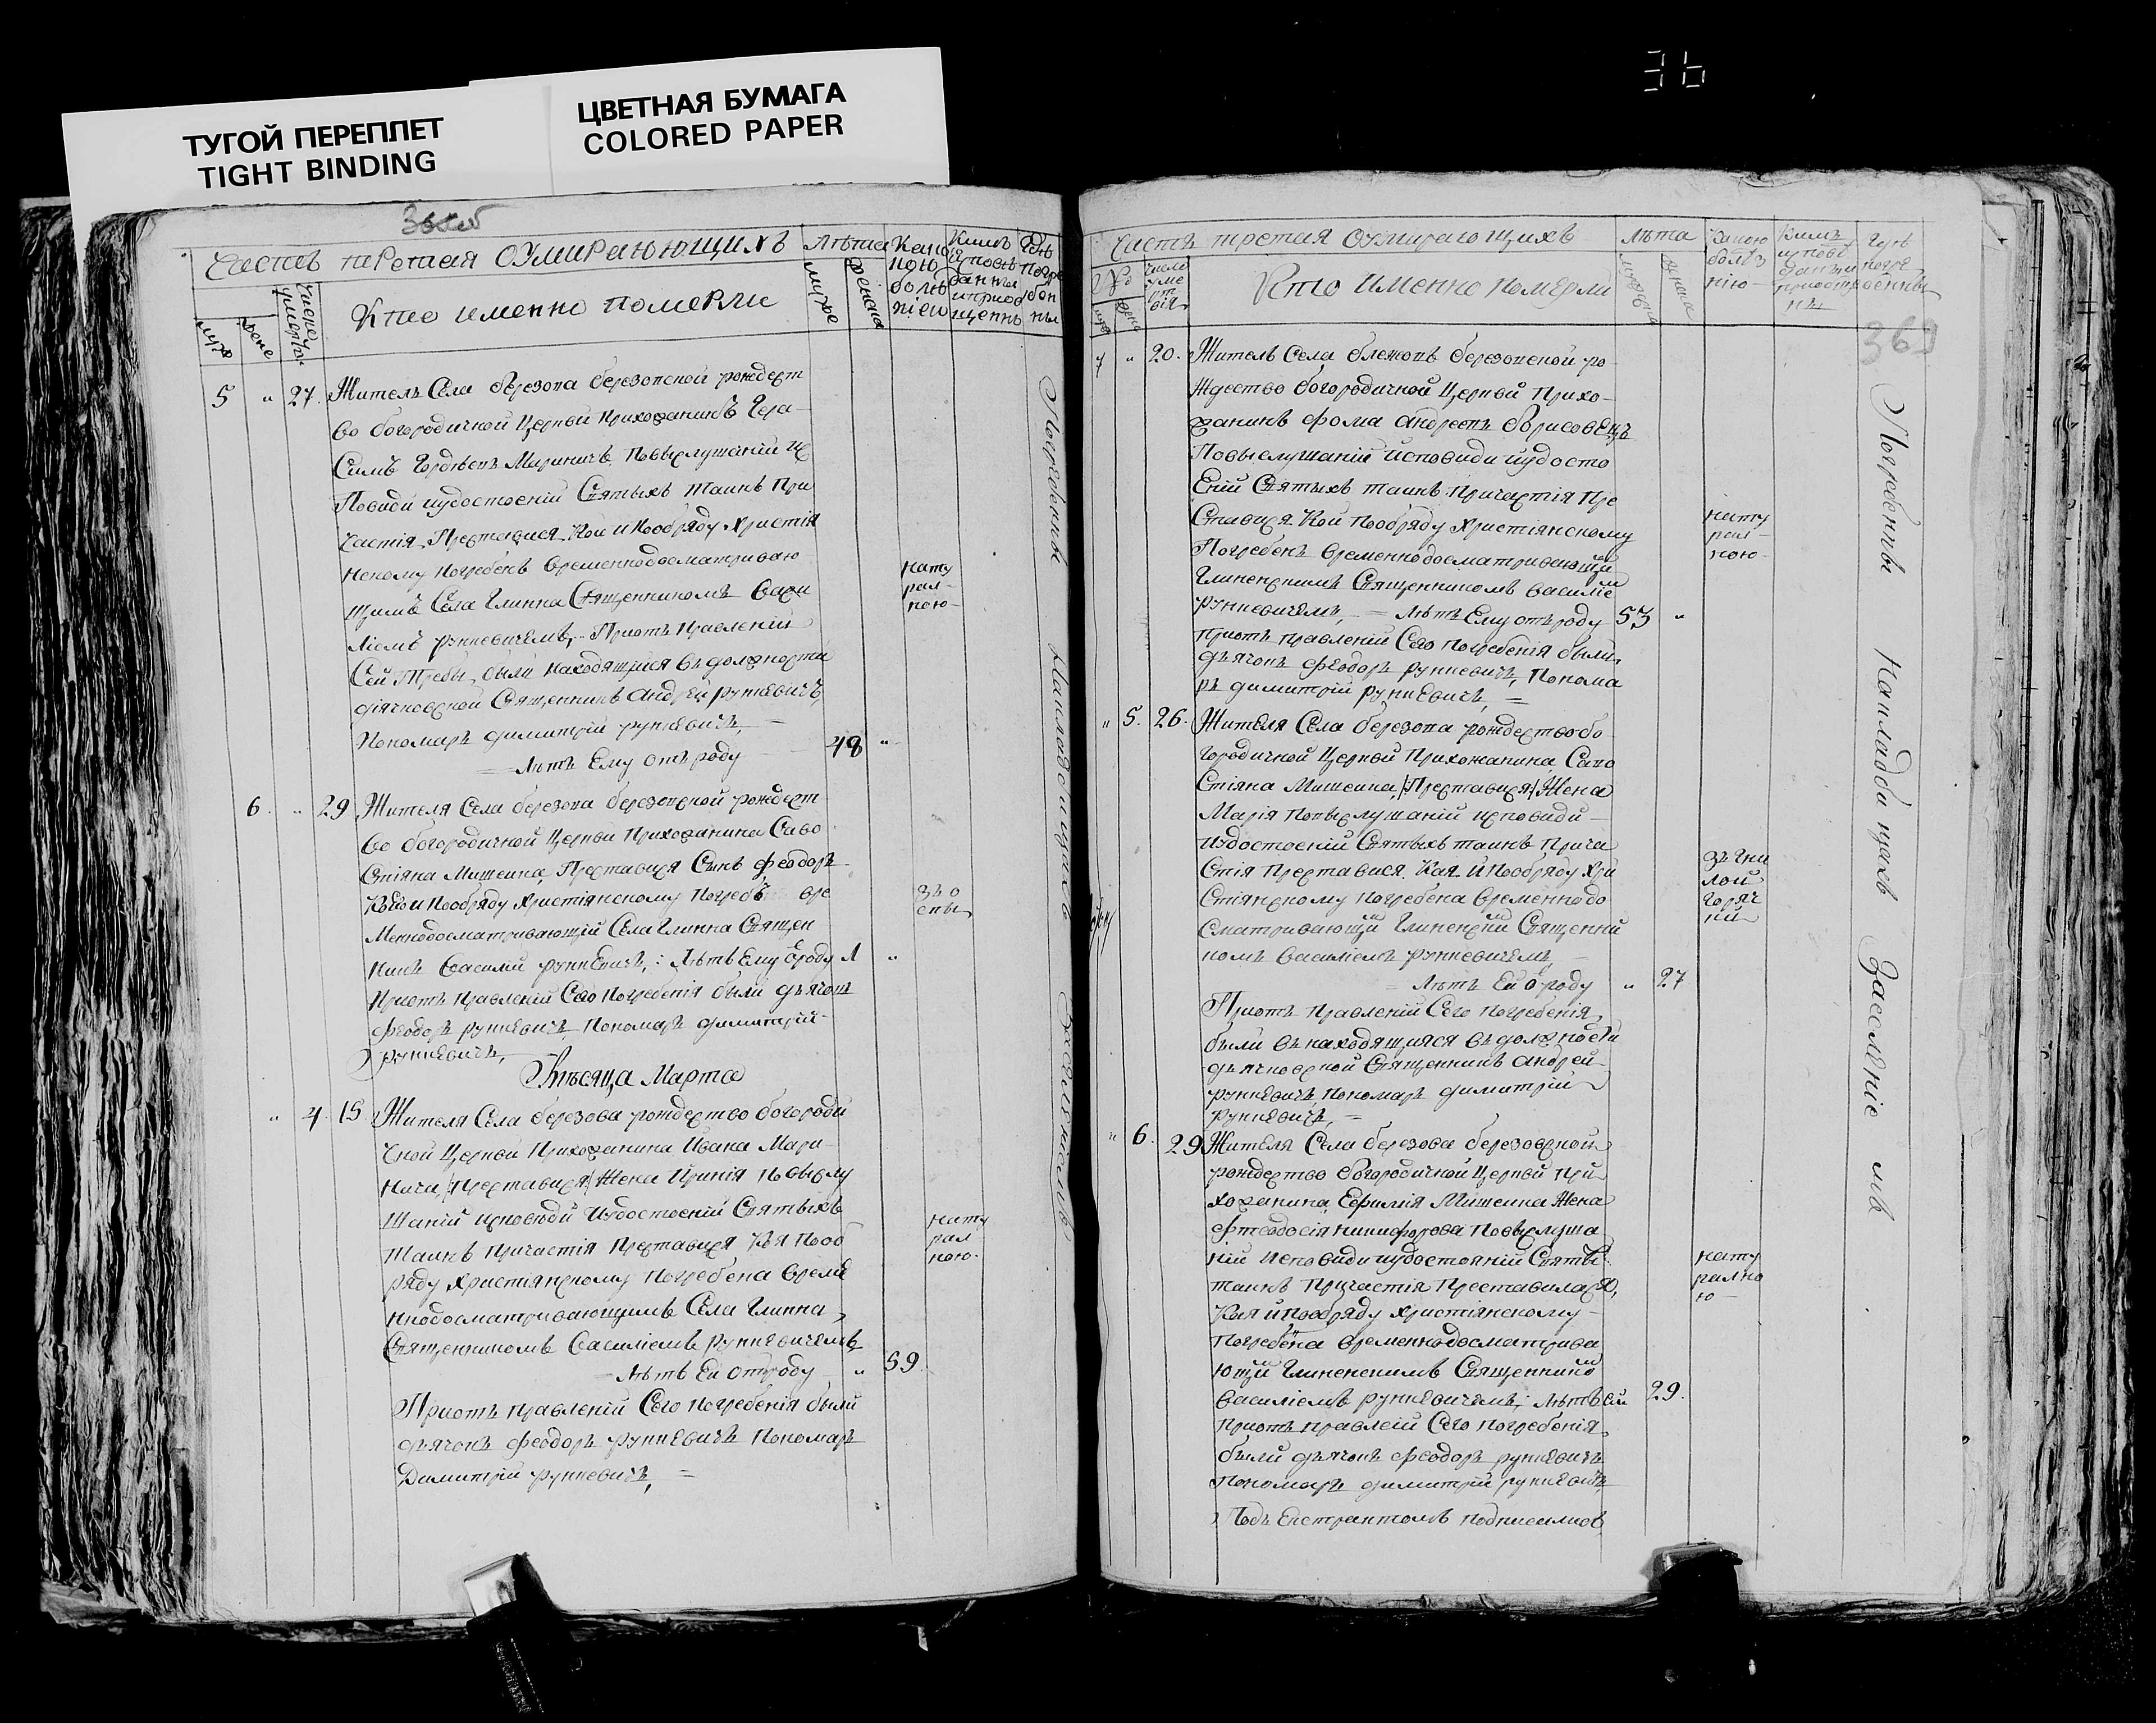 ТУГОЙ ПЕРЕПЛЕТ
TIGHT BINDING
ЦВЕТНАЯ БУМАГА
COLORED PAPER
36
Часть третая оумираюющихъ
Лѣта
Кто именно померли
муже
женска
муж
жене
5 " 27. Житель Села березова березовской рождест
во богородичной Церкви Прихожанинъ Гера
Симъ Гордѣевъ Мариничъ, Повыслушаніи ис
Повиди иудостоеніи Святыхъ таинъ При
частія, Преставися, Кои и пообряду Христія
нскому погребенъ временнодосматриваю
щимъ Села Глинна Священникомъ Васи
ліемъ рункевичемъ, Приотъ правленіи
Сей Требы, были находящійся въ должности
дячковской Священникъ андрей рункевичъ,
Пономаръ димитрій рункевичъ,
Лѣтъ Ему отъ роду 48 "
нату
рал
ною
6. " 29 Жителя Села березова березовской рождест
во богородичной Церкви Прихожанина Саво
Стіяна Мишеика, Преставися Сынъ феодоръ
Кой и пообряду Христіянскому погребъ вре
Меннодосматривающій Села Глинна Священ
никъ Василій рункевичъ, : Лѣтъ Ему ѿроду 1 "
Приотъ правленіи Сего погребенія были дьячокъ
феодоръ рункевичъ, пономаръ димитрій
рункевичъ,
зъ о
спы
Мѣсяца Марта
" 4. 15 Жителя Села березова рождество богороди
чной Церкви Прихожанина Ивана Мари
нича, Преставися Жена Иринія Повыслу
Шаніи исповѣди иудостоеніи Святыхъ
таинъ Причастія Преставися Коя пооб
ряду Христіянскому погребена време
ннодосматривающимъ Села Глинна
Священникомъ Василіемъ рункевичемъ
Лѣтъ Ей отроду " 59.
нату
рал
ною
Приотъ правленіи Сего погребенія были
дьячокъ феодоръ рункевичъ Пономаръ
Димитрій рункевичъ, =
Погребенны
Часть третая оумирающихъ
Лѣта
Кто именно померли
369
7 " 20. Житель Села березовской ро
Ждество богородичной Церкви Прихо
жанинъ фома андреевъ борисовецъ
Повыслушаніи исповиди иудосто
Еніи Святыхъ таинъ Причастія Пре
Ставися Кои пообряду Христіянскому
Погребенъ временнодосматривающи
Глиненскимъ Священникомъ василіе
рункевичемъ, = Лѣтъ Ему отъ роду 53 "
Приотъ правленіи Сего погребенія были
дьячокъ феодоръ рункевичъ, Понома
ръ димитрій рункевичъ, =
нату
рал
ною
" 5. 26. Жителя Села березова рождество бо
городичной Церкви Прихожанина, Саво
Стіяна Мишеика, Преставися Жена
Марія Повыслушаніи исповиди
иудостоеніи Святыхъ таинъ Прича
Стія Преставися Кая и пообряду Хри
Стіянскому погребена временнодо
Сматривающи Глиненскій Священни
комъ василіемъ рункевичемъ,
Лѣтъ Ей ѿ роду " 27
зъ гни
лой
горяч
ки
Приотъ правленіи Сего погребенія
были в находящіися въ должности
дьячковской Священникъ андрей
рункевичъ, Пономаръ димитрій
рункевичъ, =
" 6. 29 Жителя Села березова березовской
рождество богородичной Церкви При
хожанина, Мишеика Жена
Феодосія никифорова Повыслуша
ніи исповиди иудостояніи Святы
таинъ Причастія Преставилася,
Кая и пообряду Христіянскому
погребена временнодосматрива
ющи Глиненскимъ Священнико
василіемъ рункевичемъ: Лѣтъ ей 29.
нату
рално
ю
Приотъ правлеіи Сего погребенія
были дьячокъ феодоръ рункевичъ
Пономаръ димитрій рункевичъ
Подъ Екстрактомъ подписались
Погребенны на кладбищахъ